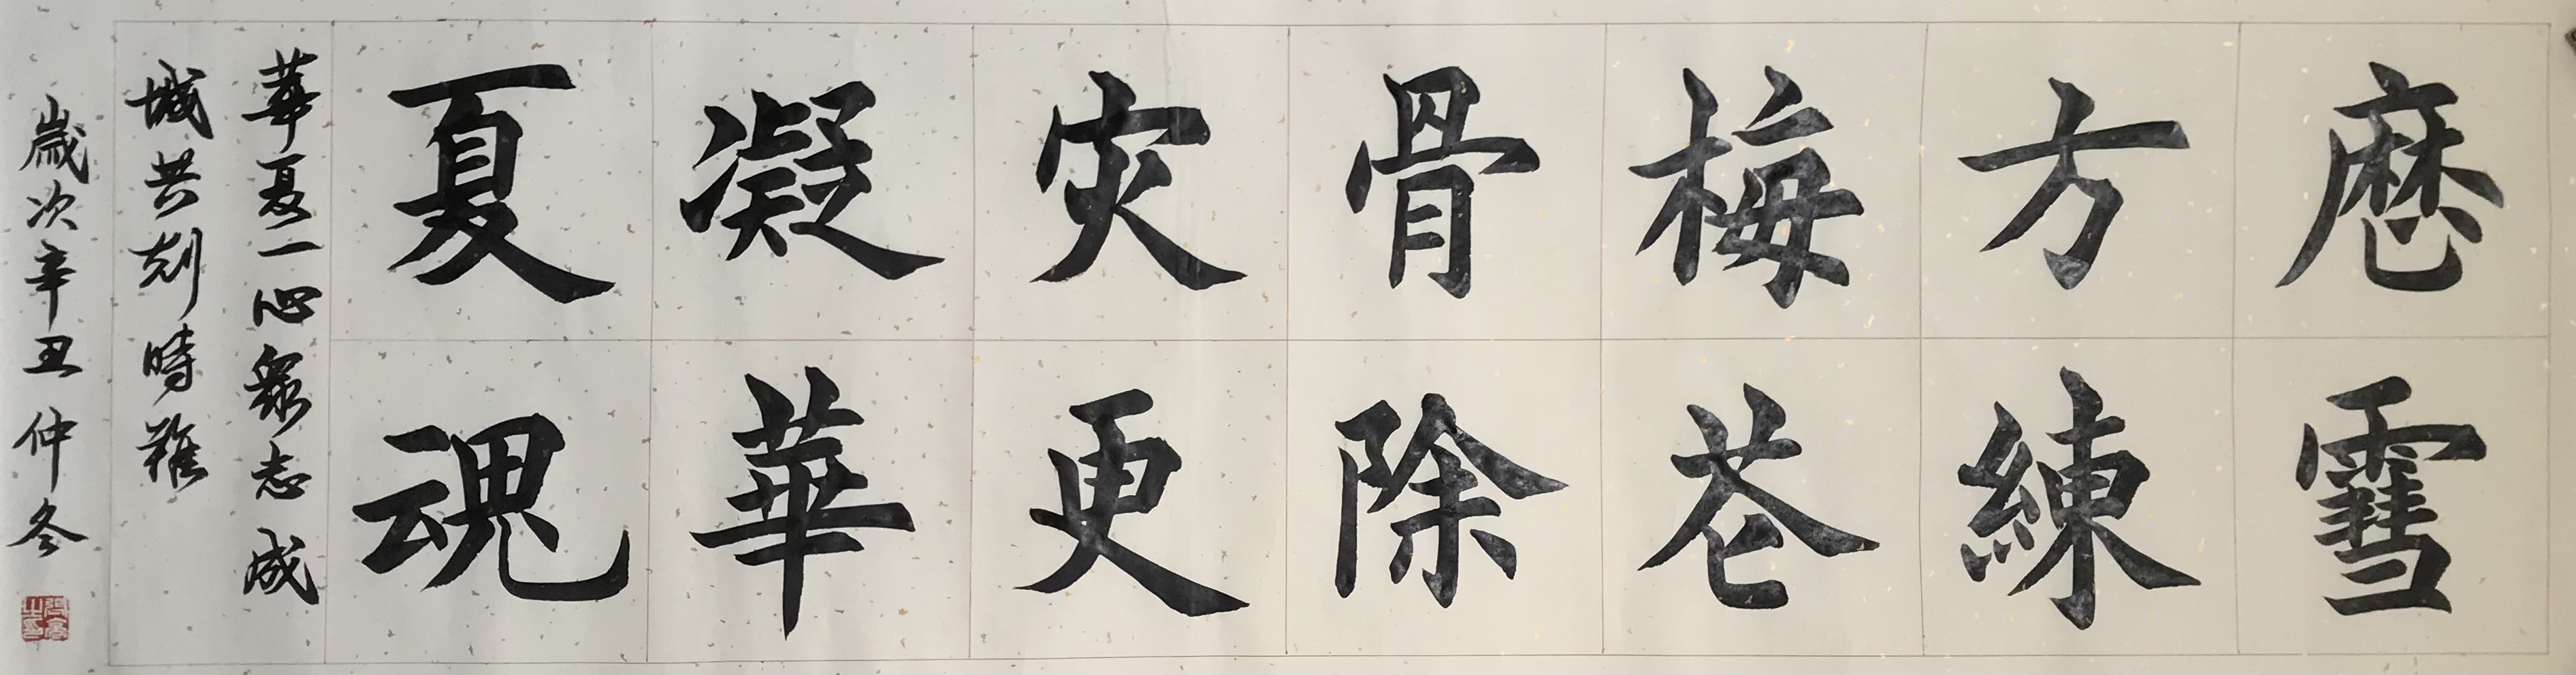 歷雪
方練
梅花
骨除
灾更
凝華
夏魂
華夏一心衆志成
城共剋時難
歲次辛丑仲冬